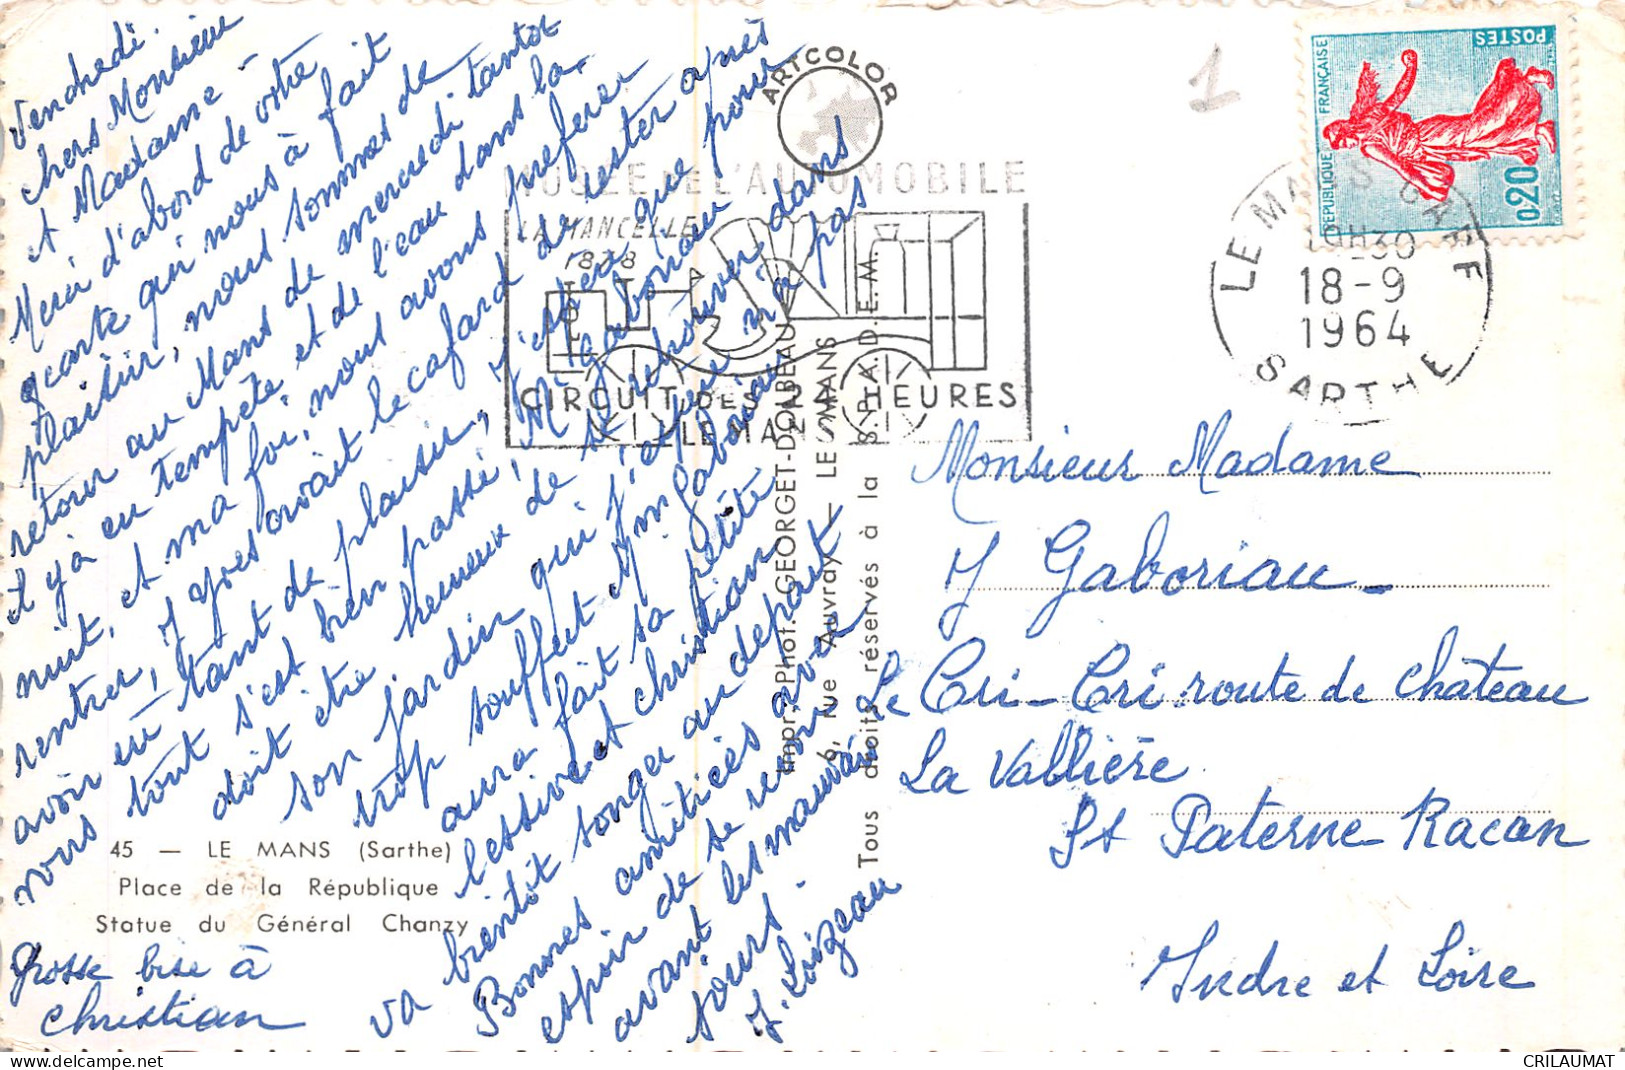 Vendredi.
Chers Monsieur
et Madame -
Merci d'abord de votre
carte qui nous à fait
plaisir, nous sommes de
retour au Mans de mercredi tantot
il y à eu tempete, et de l'eau dans la
nuit, et ma foi, nous avons preferer
rentrer, J Yves avait le cafard de rester après
avoir eu tant de plaisir, J'espère que pour
vous tout s'est bien passé, M. Gaboriau
doit être heureux de se retrouver dans
son jardin qui j'espère n'à pas
trop souffert et Mm Gaboriau
aura fait sa petite
lessive et christian
va bientôt songer au depart
Bonnes amitiées avec
espoir de se revoir
avant les mauvais
jours.
J. Loizeau
Grosse bise à
Christian
45 — LE MANS (Sarthe)
Place de la République
Statue du Général Chanzy
ARTCOLOR
MUSÉE DE L'AUTOMOBILE
LA MANCELLE
1878
CIRCUIT DES 24 HEURES
LE MANS
Impr. Phot. GEORGET-DOUBEAU
6, rue Auvray — LE MANS
Tous droits réservés à la S.P.A.D.E.M.
1
RÉPUBLIQUE FRANÇAISE
POSTES
0,20
LE MANS GARE
19H30
18-9
1964
SARTHE
Monsieur Madame
J Gaboriau -
Le Cri-Cri route de Château
La Vallière
St Paterne Racan
Indre et Loire
CRILAUMAT